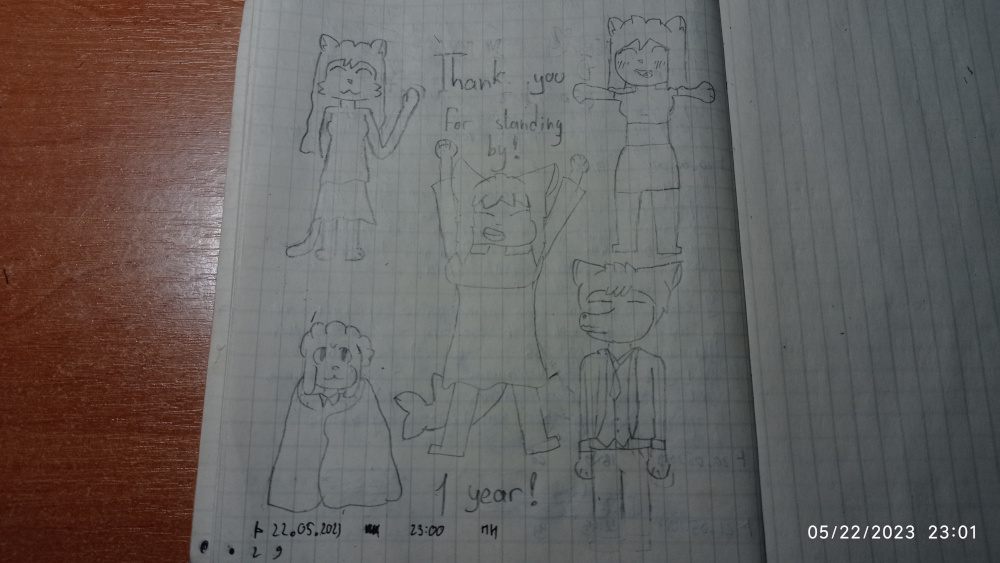 Thank you
For standing
by!
1 year!
22.05.2023 23:00 ПН
2 9
05/22/2023 23:01